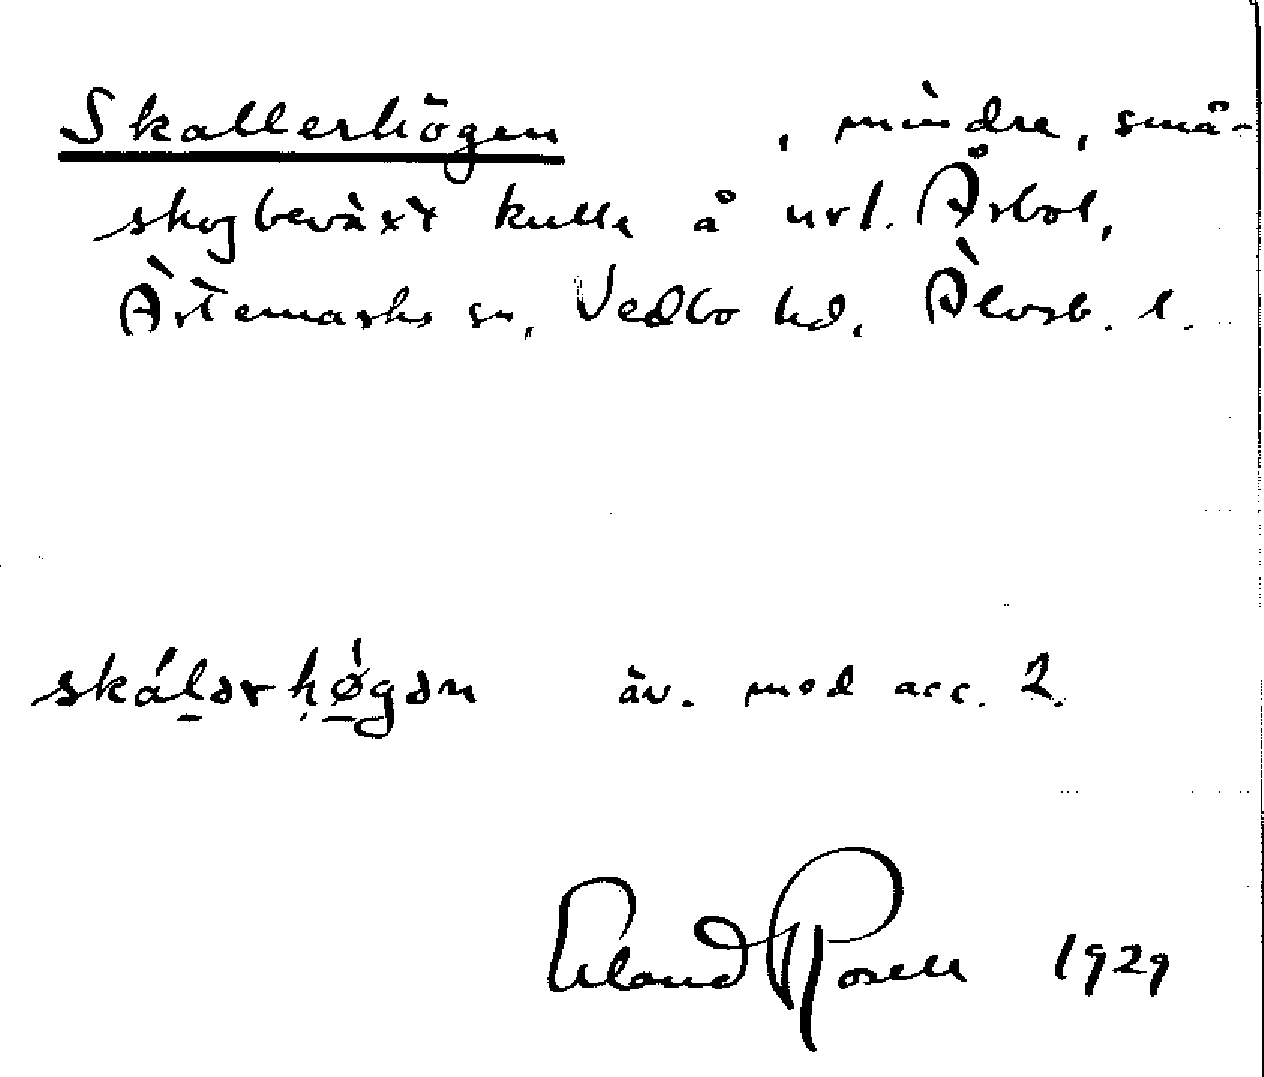 Skallerhögen , mindre, små-
skogbeväxt kulle å utl. Årbol,
Ärtemarks sn, Vedbo hd, Älvsb. l.
skálərhǿgən äv. med acc. 2.
Erland Rosell 1929